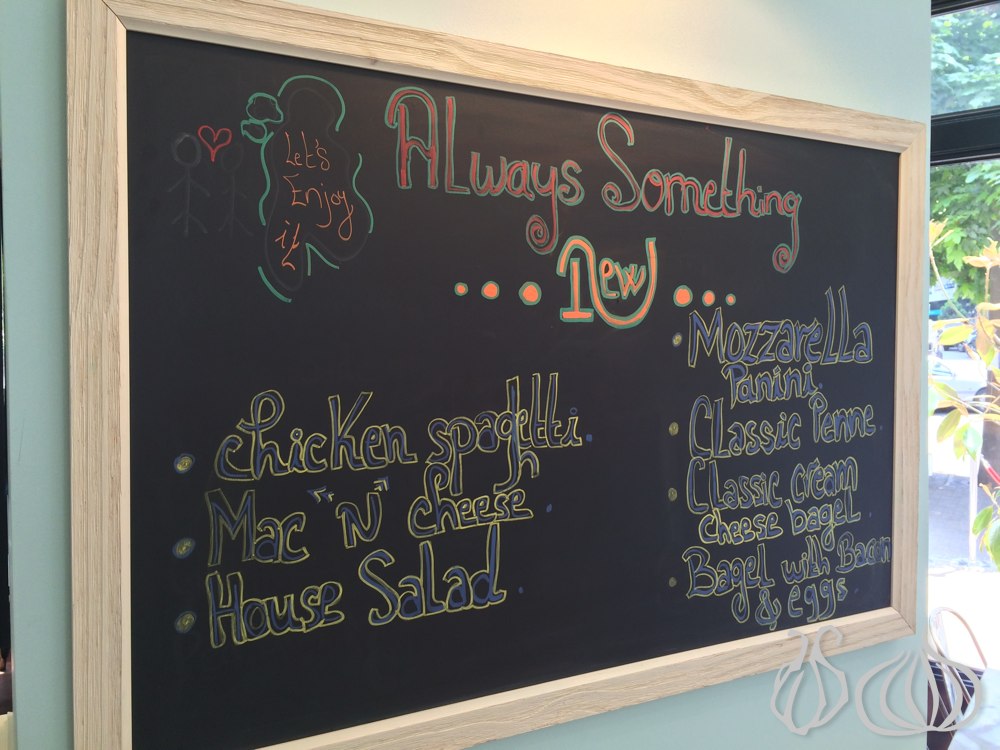 Let's
Enjoy
it
Always Something
... New ...
• Chicken spaghetti.
• Mac "N" cheese.
• House Salad.
• Mozzarella
Panini.
• Classic Penne.
• Classic cream
cheese bagel.
• Bagel with Bacon
& eggs